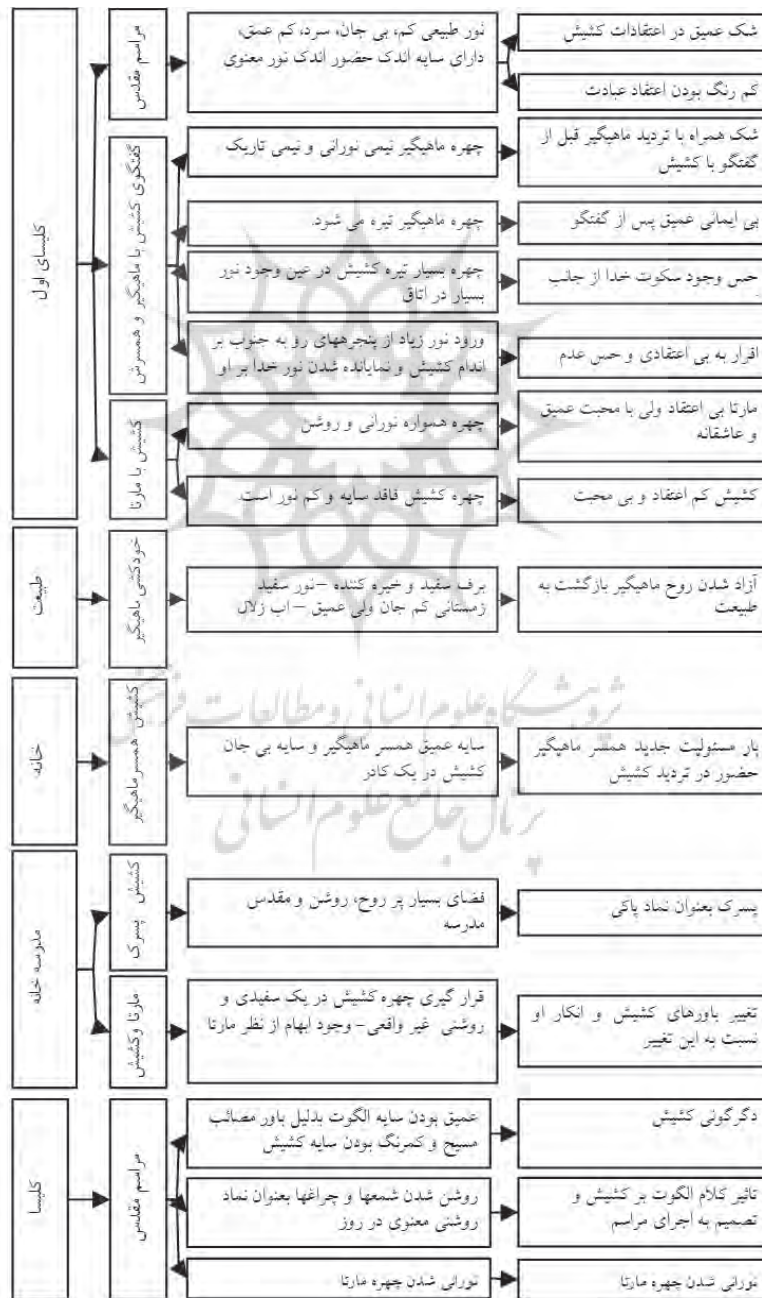 کلیسای اول
مراسم مقدس
نور طبیعی کم، بی جان، سرد، کم عمق،
دارای سایه اندک حضور اندک نور معنوی
شک عمیق در اعتقادات کشیش
کم رنگ بودن اعتقاد عبادت
گفتگوی کشیش با ماهیگیر و همسرش
چهره ماهیگیر نیمی نورانی و نیمی تاریک
شک همراه با تردید ماهیگیر قبل از
گفتگو با کشیش
چهره ماهیگیر تیره می شود.
بی ایمانی عمیق پس از گفتگو
چهره بسیار تیره کشیش در عین وجود نور
بسیار در اتاق
حس وجود سکوت خدا از جانب
ورود نور زیاد از پنجرههای رو به جنوب بر
اندام کشیش و نمایانده شدن نور خدا بر او
اقرار به بی اعتقادی و حس عدم
کشیش با مارتا
چهره همواره نورانی و روشن
مارتا بی اعتقاد ولی با محبت عمیق
و عاشقانه
چهره کشیش فاقد سایه و کم نور است.
کشیش کم اعتقاد و بی محبت
طبیعت
خودکشی ماهیگیر
برف سفید و خیره کننده –نور سفید
زمستانی کم جان ولی عمیق – اب زلال
آزاد شدن روح ماهیگیر بازگشت به
طبیعت
خانه
کشیش همسر ماهیگیر
سایه عمیق همسر ماهیگیر و سایه بی جان
کشیش در یک کادر
بار مسئولیت جدید همسر ماهیگیر
حضور در تردید کشیش
پژوهشگاه علوم انسانی و مطالعات فرهنگی
پرتال جامع علوم انسانی
مدرسه خانه
کشیش پسرک
فضای بسیار پر روح، روشن و مقدس
مدرسه
پسرک بعنوان نماد پاکی
مارتا وکشیش
قرار گیری چهره کشیش در یک سفیدی و
روشنی غیر واقعی- وجود ابهام از نظر مارتا
تغییر باورهای کشیش و انکار او
نسبت به این تغییر
کلیسا
مراسم مقدس
عمیق بودن سایه الگوت بدلیل باور مصائب
مسیح و کمرنگ بودن سایه کشیش
دگرگونی کشیش
روشن شدن شمعها و چراغها بعنوان نماد
روشنی معنوی در روز
تاثیر کلام الگوت بر کشیش و
تصمیم به اجرای مراسم
نورانی شدن چهره مارتا
نورانی شدن چهره مارتا